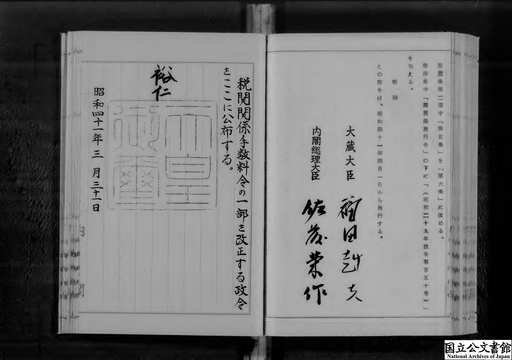 第二項中「第五条」を「第六条」に改める。
中「関税法施行令」の下に「（昭和二十九年政令第百五十号）」
を加える。
附則
この政令は、昭和四十一年四月一日から施行する。
大蔵大臣 福田赳夫
内閣総理大臣 佐藤栄作
税関関係手数料令の一部を改正する政令
をここに公布する。
裕仁
天皇
御璽
昭和四十一年三月三十一日
国立公文書館
National Archives of Japan